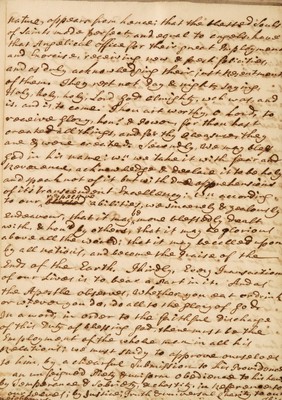 nature, appears from hence; that the blessed Souls
of Saints made perfect and equal to angels, have
that Angelical office for their great Employment
and Exercise; receiving new & fresh felicities
and as duly acknowledging their just Resentment
of them. They rest not day & night, saying,
Holy, holy, holy, Lord God almighty, wch was, and
is, and is to come. Thou art worthy, O Lord, to
receive glory, honr, & power; for thou hast
created all things, and for thy pleasure they
are & were created. Secondly, We may bless
God in his name; wn we take it with fear and
reverence acknowledge & declare it to be holy
and thankworthy; wn we have due apprehensions
of its transcendent Excellency; wn according
to our possibilities, we sincerely & zealously
endeavour, that it may be more blessedly dealt
with, & had by others; that it may be glorious
above all the world; that it may be called upon
by all nations, and become the praise of the
Ends of the Earth. Thirdly, Every Transaction
of our lives is to bear a part in it. And as
the Apostle observes, whether you eat or drink
or wtever you do, do all to the glory of God.
In a word, in order to the faithful discharge
of this duty of blessing God there must be the
Employment of the whole man in all his
Relations; we must study to approve ourselves
to him, by a chearful Submission to his Providence
an unfeigned Piety & uniform obedience to his laws
by Temperance & Sobriety & chastity, in reference to
ourselves; by Justice, Truth & universal Charity to our